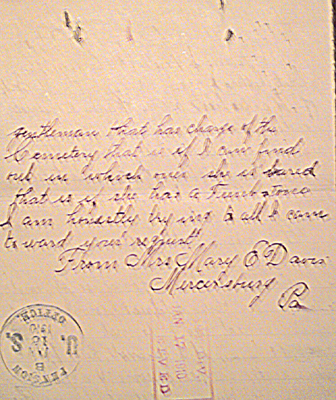 gentleman that has charge of the
Cemetery that is if I can find
out in which one she is bured
that is if she has a Tumbstone
I am honestly trying to all I can
to ward your request"
From Mrs Mary E Davis
Mercersburg
Pa
U. S.
PENSION
OFFICE